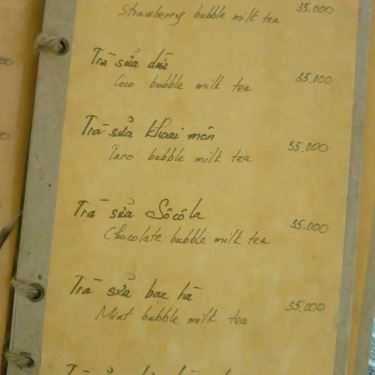 Strawberry bubble milk tea 35.000
Trà sữa dừa
Coco bubble milk tea 35.000
Trà sữa khoai môn
Taro bubble milk tea 35.000
Trà sữa Sôcôla
Chocolate bubble milk tea 35.000
Trà sữa bạc hà
Mint bubble milk tea 35.000
Trà sữa